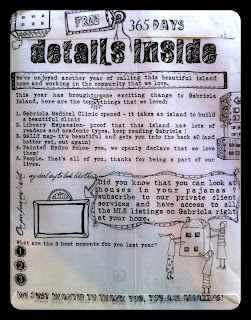 FREE
365 DAYS
details inside
We've enjoyed another year of calling this beautiful island
home and working in the community that we love.
This year has brought some exciting change to Gabriola
Island, here are the top things that we loved:
1. Gabriola Medical Clinic opened - it takes an island to build
a beautiful clinic
2. Library Expansion- proof that this island has lots of
readers and academic types, keep reading Gabriola.
3. GALLI map- it's beautiful and gets you into the back 40 (and
better yet, out again)
4. Painted Hydro Poles- yes, we openly declare that we love
them!
5. People. That's all of you, thanks for being a part of our
lives.
my ideal day to look like this
Did you know that you can look at
houses in your pajamas?
subscribe to our private client
services and have access to all
the MLS listings on Gabriola right
at your home.
What are the 3 best moments for you last year?
1
2
3
WE JUST WANTED TO THANK YOU, YOU ARE AMAZING!